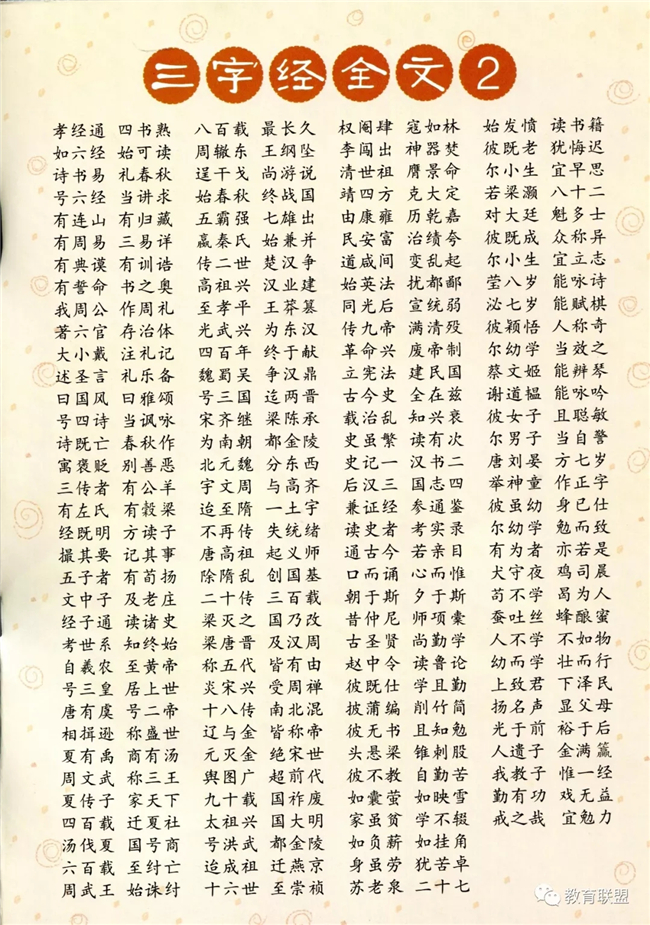 三字经全文2
孝经通 四书熟
如六经 始可读
诗书易 礼春秋
号六经 当讲求
有连山 有归藏
有周易 三易详
有典谟 有训诰
有誓命 书之奥
我周公 作周礼
著六官 存治体
大小戴 注礼记
述圣言 礼乐备
曰国风 曰雅颂
号四诗 当讽咏
诗既亡 春秋作
寓褒贬 别善恶
三传者 有公羊
有左氏 有穀梁
经既明 方读子
撮其要 记其事
五子者 有荀扬
文中子 及老庄
经子通 读诸史
考世系 知终始
自羲农 至黄帝
号三皇 居上世
唐有虞 号二帝
相揖逊 称盛世
夏有禹 商有汤
周文武 称三王
夏传子 家天下
四百载 迁夏社
汤伐夏 国号商
六百载 至纣亡
周武王 始诛纣
八百载 最长久
周辙东 王纲坠
逞干戈 尚游说
始春秋 终战国
五霸强 七雄出
嬴秦氏 始兼并
传二世 楚汉争
高祖兴 汉业建
至孝平 王莽篡
光武兴 为东汉
四百年 终于献
魏蜀吴 争汉鼎
号三国 迄两晋
宋齐继 梁陈承
为南朝 都金陵
北元魏 分东西
宇文周 与高齐
迨至隋 一土宇
不再传 失统绪
唐高祖 起义师
除隋乱 创国基
二十传 三百载
梁灭之 国乃改
梁唐晋 及汉周
称五代 皆有由
炎宋兴 受周禅
十八传 南北混
辽与金 皆称帝
元灭金 绝宋世
舆图广 超前代
九十载 国祚废
太祖兴 国大明
号洪武 都金陵
迨成祖 迁燕京
十六世 至崇祯
权阉肆 寇如林
李闯出 神器焚
清世祖 膺景命
靖四方 克大定
由康雍 历乾嘉
民安富 治绩夸
道咸间 变乱起
始英法 扰都鄙
同光后 宣统弱
传九帝 满清殁
革命兴 废帝制
立宪法 建民国
古今史 全在兹
载治乱 知兴衰
史虽繁 读有次
史记一 汉书二
后汉三 国志四
兼证经 参通鉴
读史者 考实录
通古今 若亲目
口而诵 心而惟
朝于斯 夕于斯
昔仲尼 师项橐
古圣贤 尚勤学
赵中令 读鲁论
彼既仕 学且勤
披蒲编 削竹简
彼无书 且知勉
头悬梁 锥刺股
彼不教 自勤苦
如囊萤 如映雪
家虽贫 学不辍
如负薪 如挂角
身虽劳 犹苦卓
苏老泉 二十七
始发愤 读书籍
彼既老 犹悔迟
尔小生 宜早思
若梁灏 八十二
对大廷 魁多士
彼既成 众称异
尔小生 宜立志
莹八岁 能咏诗
泌七岁 能赋棋
彼颖悟 人称奇
尔幼学 当效之
蔡文姬 能辨琴
谢道韫 能咏吟
彼女子 且聪敏
尔男子 当自警
唐刘晏 方七岁
举神童 作正字
彼虽幼 身已仕
尔幼学 勉而致
有为者 亦若是
犬守夜 鸡司晨
苟不学 曷为人
蚕吐丝 蜂酿蜜
人不学 不如物
幼而学 壮而行
上致君 下泽民
扬名声 显父母
光于前 裕于后
人遗子 金满籯
我教子 惟一经
勤有功 戏无益
戒之哉 宜勉力
教育联盟